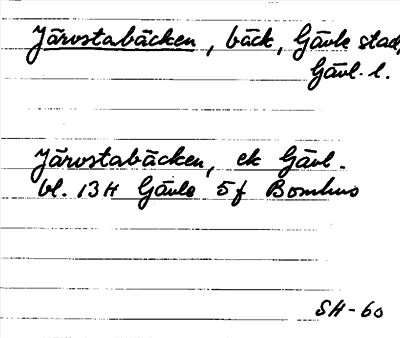 Järvstabäcken, bäck, Gävle stad,
Gävl. l.
Järvstabäcken, ek Gävl.
bl. 13H Gävle 5f Bomhus
SH-60